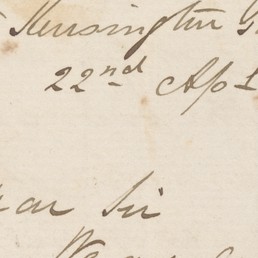 Kensington G
22nd Ap
ear Sir